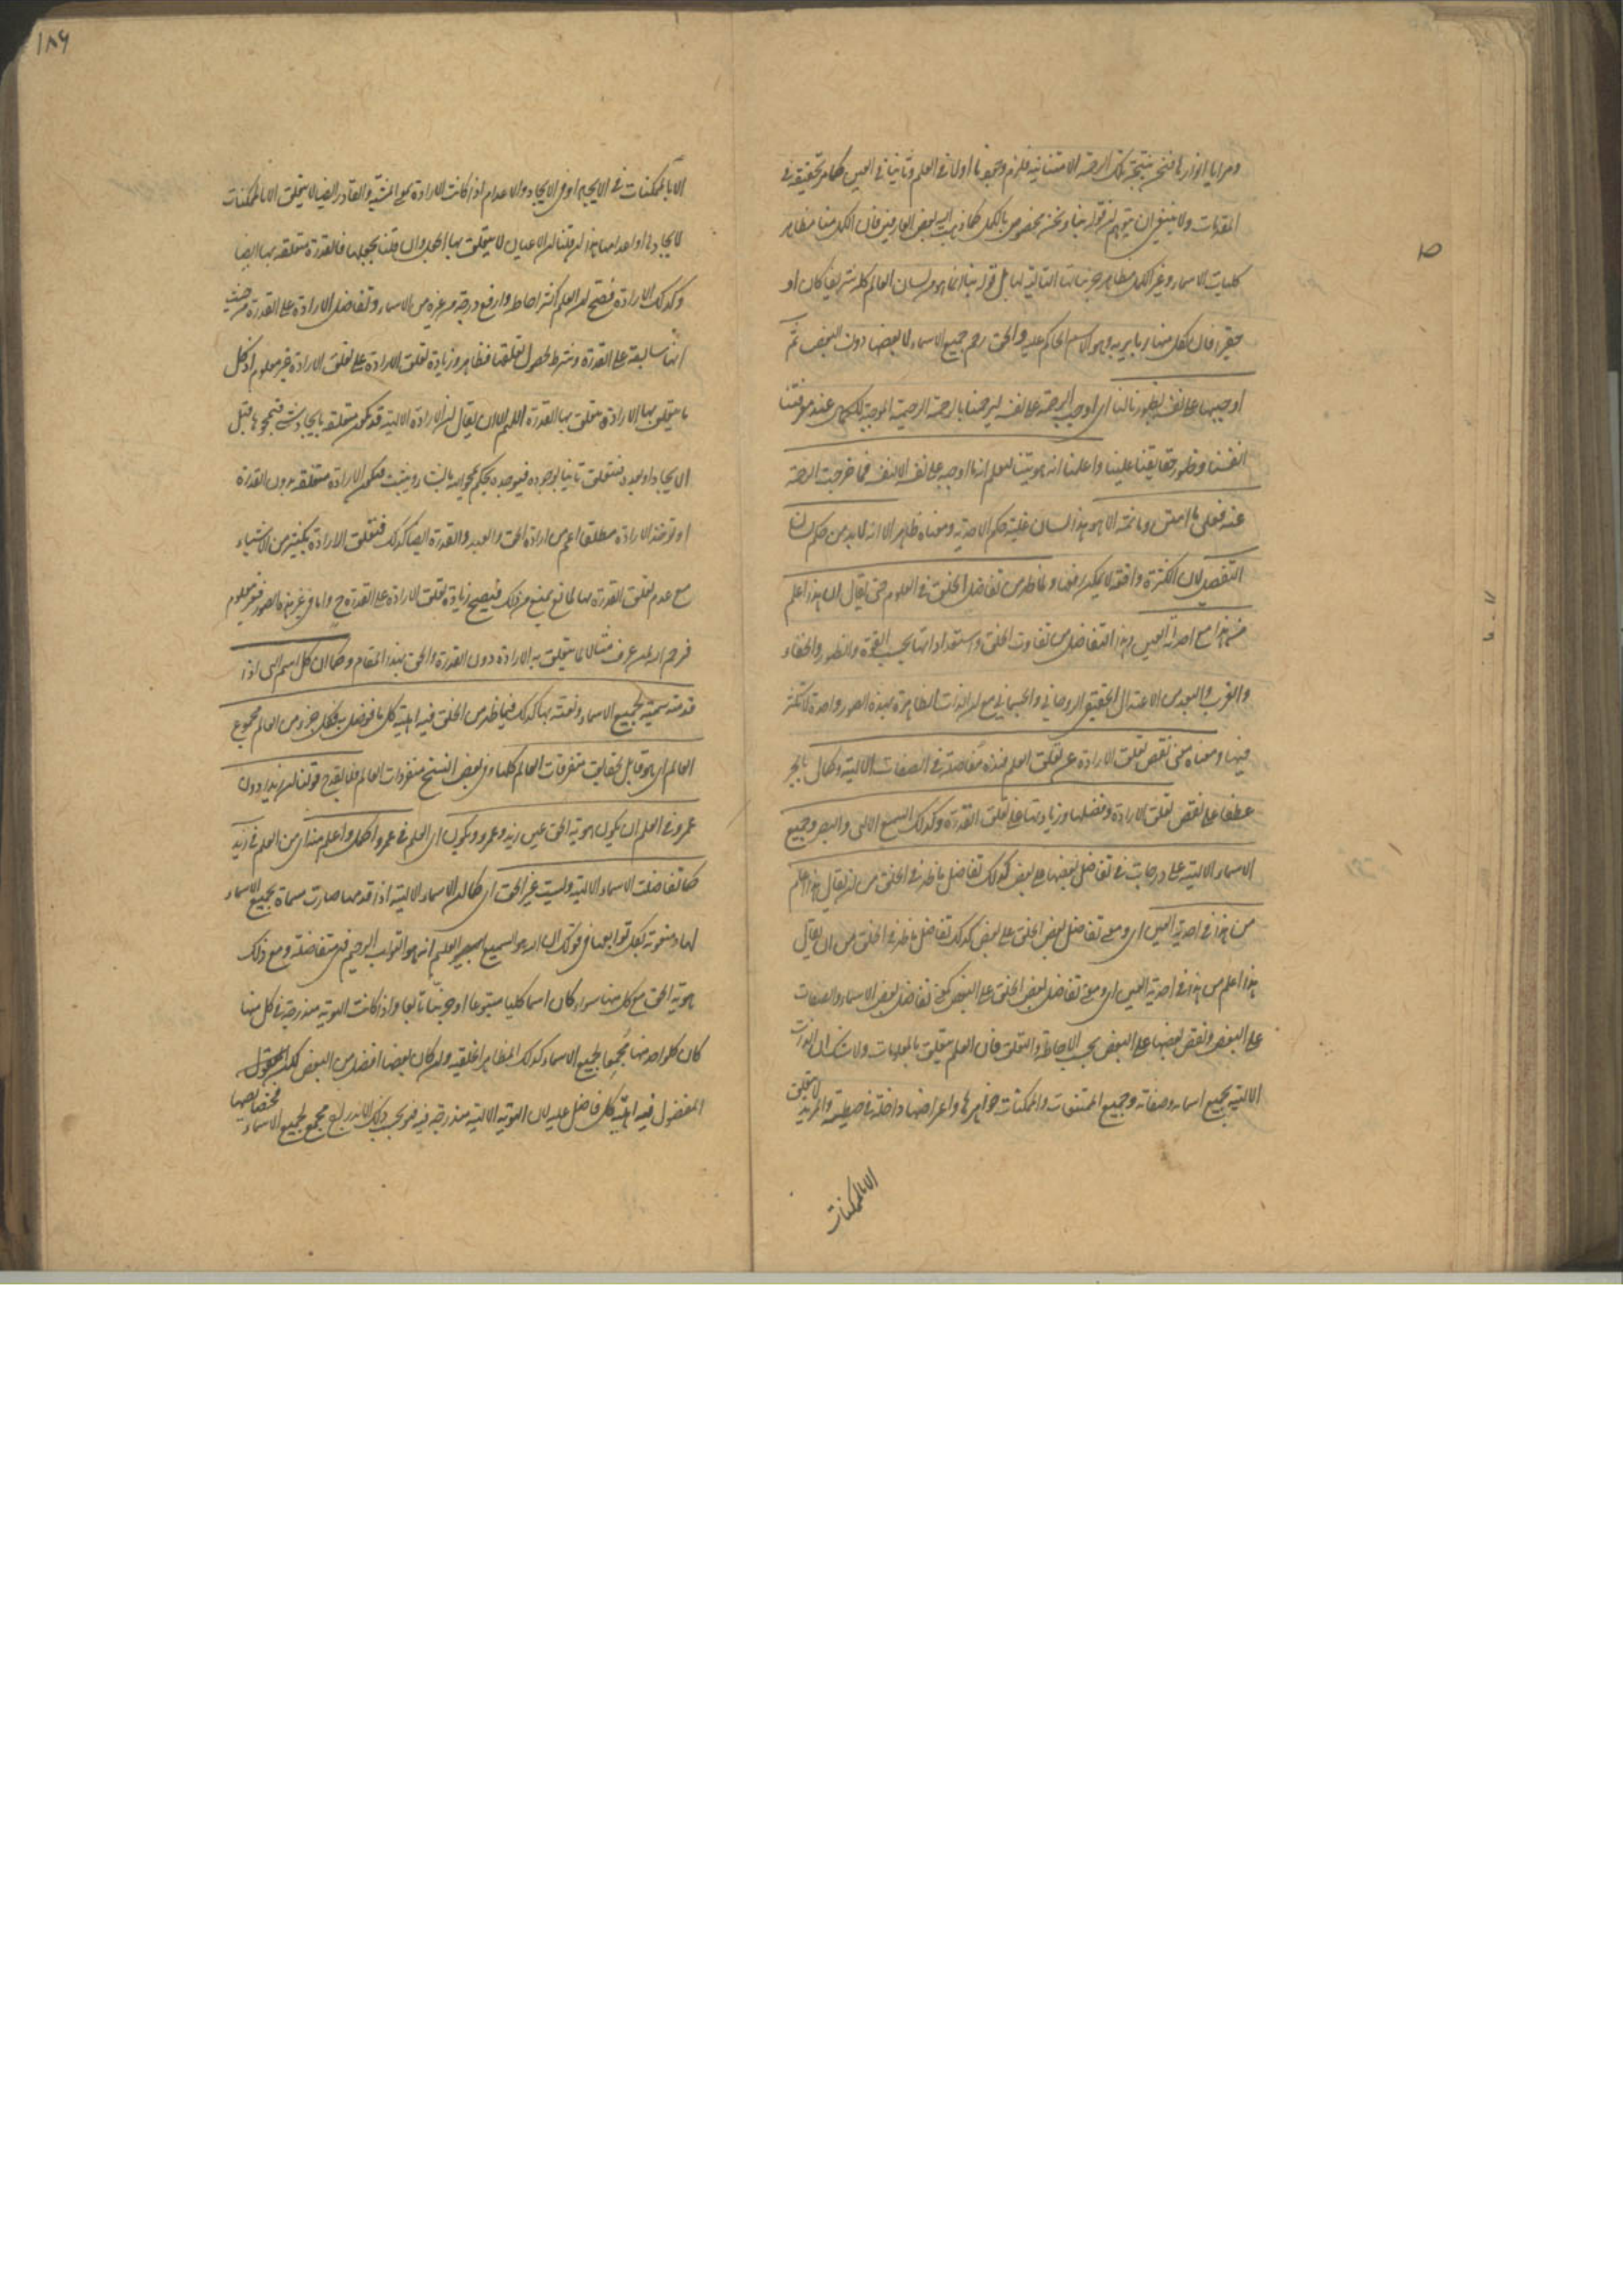 ومرايا انوارها فنحن نتيجة تلك الرحمة الامتنانية فلزم وجودنا اولا في العلم وثانيا في العين كما مر تحقيقه في
المقدمات ولا ينبغي ان يتوهم ان قوله بنا ونحن مخصوص بالكمل كما ذهب اليه بعض العارفين فان الكمل منا مظاهر
كليات الاسماء وغير الكمل مظاهر جزئياتها التالية لها بل قوله بنا انما هو من لسان العالم كله شريفا كان او
حقيرا فان لكل منها ربا يربه وهو الاسم الحاكم عليه والحق رحم جميع الاسماء لا بعضها دون البعض ثم
اوجبها على نفسه بظهورنا لنا اي اوجب الرحمة على نفسه ليرحمنا بالرحمة الرحيمية الموجبة للكمال عند معرفتنا
انفسنا وظهور حقايقنا علينا واعلمنا انه هويتنا لنعلم انه ما اوجبها على نفسه الا لنفسه فما خرجت الرحمة
عنه فعلى من امتن وما ثمه الا هو هذا لسان غلبة حكم الاحدية ومعناه ظاهر الا انه لابد من حكم لسان
التفصيل لان الكثرة واقعة لا يمكن رفعها ولما ظهر من تفاضل الخلق في العلوم حتى يقال ان هذا اعلم
من هذا مع احدية العين وهذا التفاضل من تفاوت الخلق واستعداداتها بحسب القوة والظهور والخفاء
والقرب والبعد من الاعتدال الحقيقي الروحاني والجسماني مع ان الذات الظاهرة بهذه الصور واحدة لا تكثر
فيها ومعناه معنى نقص تعلق الارادة عن تعلق العلم فهذه مفاضلة في الصفات الالهية وكمال بالجر
عطفا على نقص تعلق الارادة وفضلها وزيادتها على تعلق القدرة وكذلك السمع الالهي والبصر وجميع
الاسماء الالهية على درجات في تفاضل بعضها على بعض كذلك تفاضل ما ظهر في الخلق من ان يقال هذا اعلم
من هذا في احدية العين اي ومعنى تفاضل بعض الخلق على بعض كذلك تفاضل ما ظهر في الخلق من ان يقال
هذا اعلم من هذا في احدية العين اي ومعنى تفاضل بعض الخلق على البعض كمعنى تفاضل بعض الاسماء والصفات
على البعض ونقص بعضها على البعض بحسب الاحاطة والتعلق فان العلم متعلق بالمعلومات ولا شك ان الذات
الالهية بجميع اسمائه وصفاته وجميع الممتنعات والممكنات جواهرها واعراضها داخلة في حيطته والمريد لا يتعلق
الا بالممكنات
١٨٦
الا بالممكنات في الايجاد او في الايجاد والاعدام اذا كانت الارادة بمعنى المشية والقادر ايضا لا يتعلق الا بالممكنات
لايجادها او اعدامها هذا ان قلنا ان الاعيان لا يتعلق بها الجعل وان قلنا بجعلها فالقدرة متعلقة بها ايضا
وكذلك الارادة فصح ان العلم اكثر احاطة وارفع درجة من غيره من الاسماء وتفاضل الارادة على القدرة من حيث
انها سابقة على القدرة وشرط لحصول تعلقها فظاهر وزيادة تعلق الارادة على تعلق الارادة غير معلوم اذ كل
ما يتعلق بها الارادة يتعلق بها القدرة اللهم الا ان يقال ان الارادة الالهية قد تكون متعلقة بايجاد شيء فيمحوها قبل
الايجاد او بعده فتتعلق ثانيا بوجوده فيوجده بحكم يمحو الله ما يشاء ويثبت فتكون الارادة متعلقة بدون القدرة
او توخذ الارادة مطلقا اعم من ارادة الحق والعبد والقدرة ايضا كذلك فتتعلق الارادة بكثير من الاشياء
مع عدم تعلق القدرة بها لمانع يمنع من ذلك فيصح زيادة تعلق الارادة على القدرة ح واما في غير هذه الصور فغير معلوم
فرحم الله لمن عرف مثالا لما يتعلق به الارادة دون القدرة والحق بهذا المقام وكما ان كل اسم الهي اذا
قدمته سميته بجميع الاسماء ونعته بها كذلك فيما ظهر من الخلق فيه اهلية كل ما فوضل به فكل جزء من العالم مجموع
العالم اي هو قابل لحقايق متفرقات العالم كلها وفي بعض النسخ مفردات العالم فلا يقدح قولنا ان زيدا دون
عمرو في العلم ان يكون هوية الحق عين زيد وعمرو ويكون اي العلم في عمرو اكمل واعلم منه اي من العلم في زيد
كما تفاضلت الاسماء الالهية وليست غير الحق اي كما ان الاسماء الالهية اذا قدمها صارت مسماة بجميع الاسماء
لها ومنعوتة بكل توابعها في قولك ان الله هو السميع البصير العليم انه هو التواب الرحيم فهي متفاضلة ومع ذلك
هوية الحق مع كل منها سواء كان اسما كليا متبوعا او جزئيا تابعا واذا كانت الهوية مندرجة في كل منها
كان كل واحد منها مجمعا لجميع الاسماء كذلك المظاهر الخلقية وان كان بعضها افضل من البعض لكن
المفضول فيه اهلية كل فاضل عليه لان الهوية الالهية مندرجة فيه فهو بحسب ذلك الاندراج مجمع لجميع الاسماء